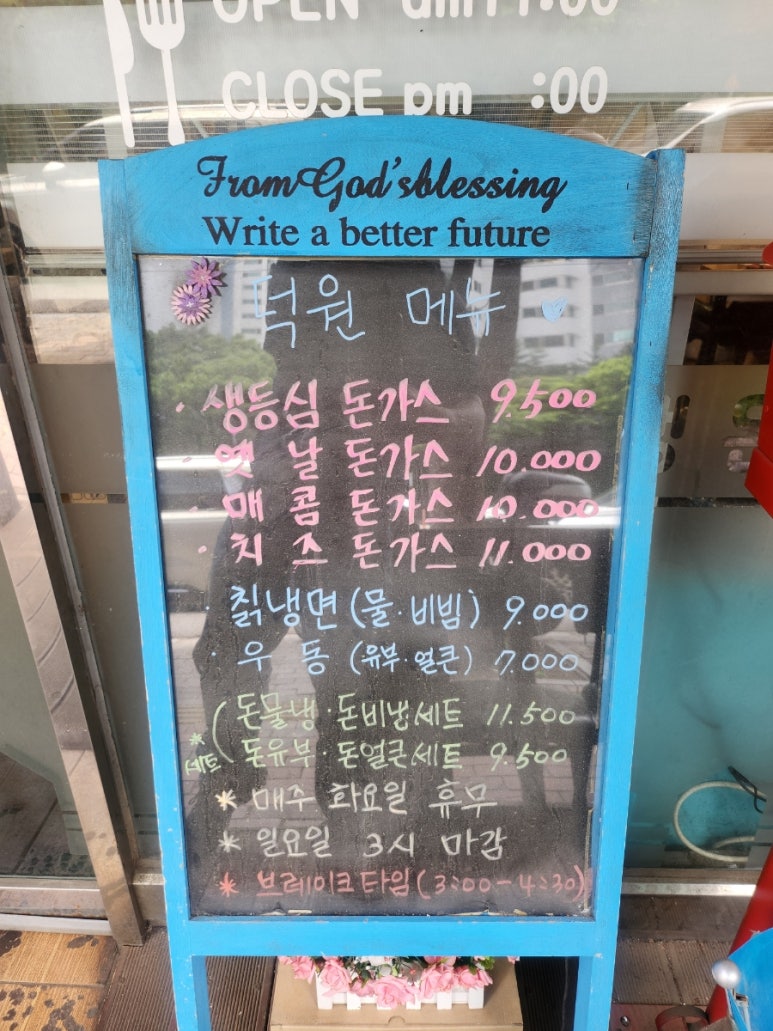 OPEN am11:00
CLOSE pm :00
From God'sblessing
Write a better future
덕원 메뉴
· 생등심 돈가스 9.500
· 옛날 돈가스 10.000
· 매콤 돈가스 10.000
· 치즈 돈가스 11.000
· 칡냉면 (물·비빔) 9.000
· 우동 (유부·얼큰) 7.000
* 세트 ( 돈물냉·돈비냉세트 11.500
돈유부·돈얼큰세트 9.500
* 매주 화요일 휴무
* 일요일 3시 마감
* 브레이크타임 (3:00-4:30)